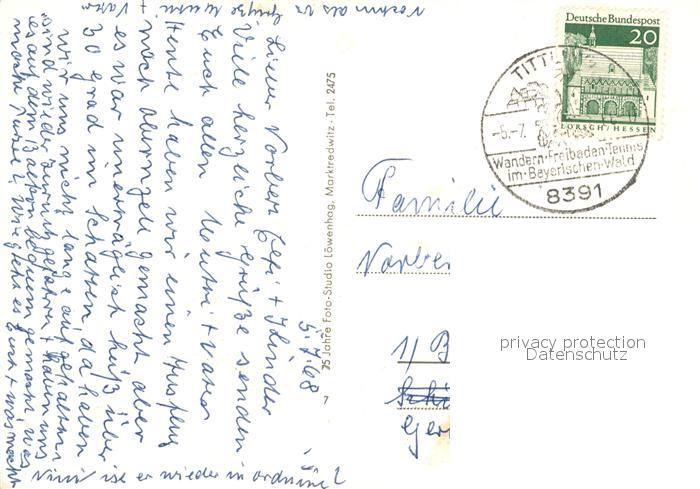 5.7.68
Lieber Norbert, Gefi + Kinder
Viele herzliche Grüße senden
Euch allen Mutti + Vater
Heute haben wir einen Ausflug
nach Obernzell gemacht aber
es war unerträglich heiß über
30 Grad im Schatten da haben
wir uns nicht lange aufgehalten
sind wieder zurück gefahren + haben uns
es auf dem Balkon bequem gemacht, was
macht ? Wie geht es Euch + was macht
ist er wieder in ordnung?
Nochmals
Grüße Mutti + Vater
75 Jahre Foto-Studio Löwenhag, Marktredwitz · Tel. 2475
7
Deutsche Bundespost
20
LORSCH/HESSEN
TITTL
-5.-7.
Wandern-Freibaden-Tennis
im-Bayerischen-Wald
8391
Familie
Norber
1/ B
Ger
privacy protection
Datenschutz